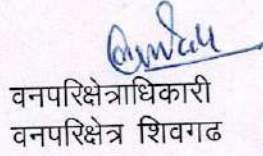 वनपरिक्षेत्राधिकारी
वनपरिक्षेत्र शिवगढ